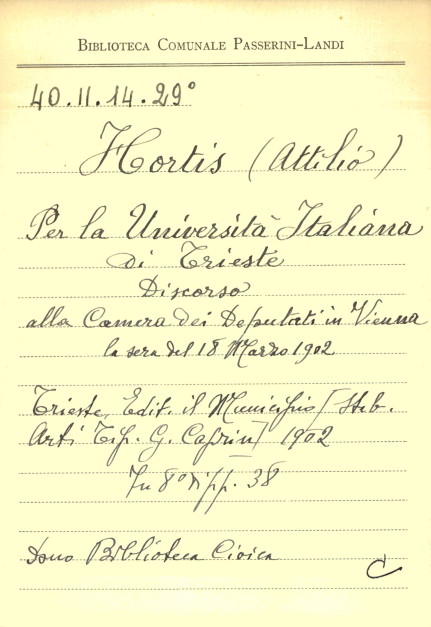 BIBLIOTECA COMUNALE PASSERINI-LANDI
40.II.14.29°
Hortis (Attilio)
Per la Università Italiana
di Trieste
Discorso
alla Camera dei Deputati in Vienna
la sera del 18 Marzo 1902
Trieste, Edit. il Municipio [Stab.
Arti Tip. G. Caprin] 1902
In 8° di pp. 38
Dono Biblioteca Civica
C